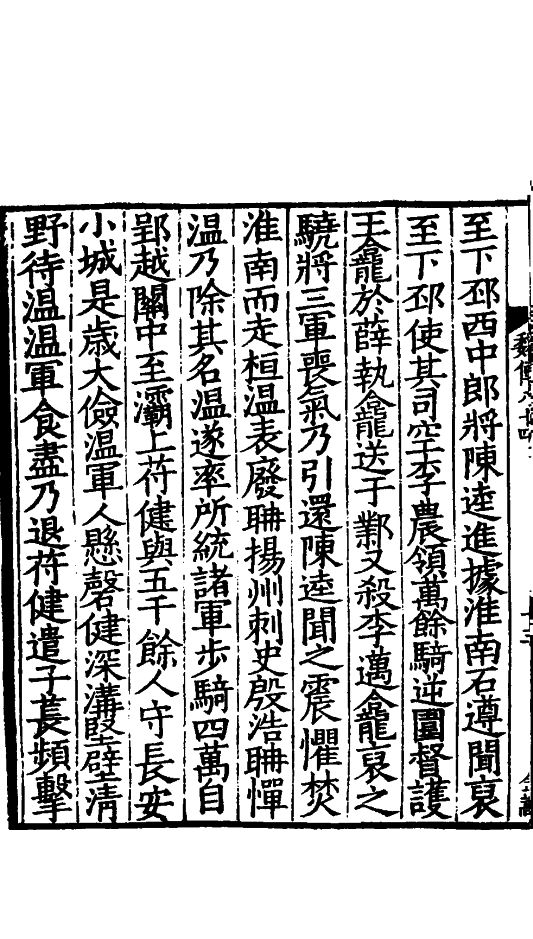 至下邳西中郎將陳逵進據淮南石遵聞裒
至下邳使其司空李農領萬餘騎逆圍督護
王龕於薛執龕送于鄴又殺李邁龕裒之
驍將三軍喪氣乃引還陳逵聞之震懼焚
淮南而走桓温表廢聃揚州刺史殷浩聃憚
温乃除其名温遂率所統諸軍步騎四萬自
郢越關中至灞上苻健與五千餘人守長安
小城是歲大儉温軍人懸磬健深溝堅壁清
野待温温軍食盡乃退苻健遣子萇頻擊